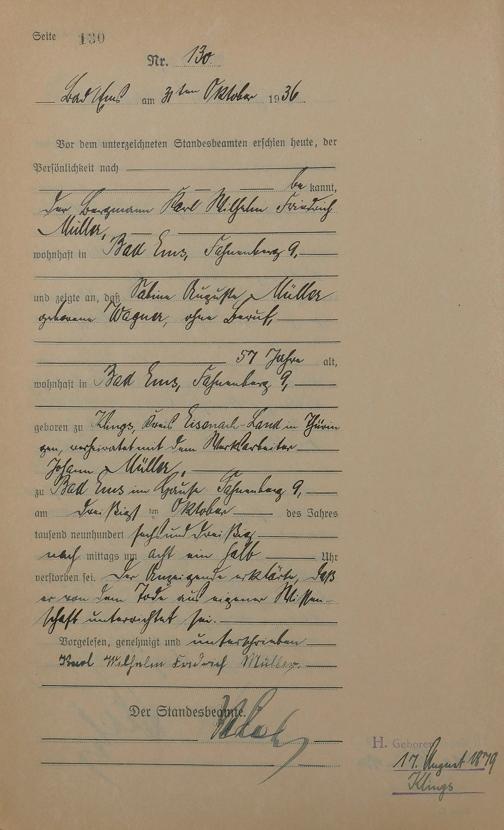 Seite 130
Nr. 130
Bad Ems am 31ten Oktober 1936
Vor dem unterzeichneten Standesbeamten erschien heute, der
Persönlichkeit nach
be kannt,
der Bergmann Karl Wilhelm Friedrich
Müller,
wohnhaft in Bad Ems, Fahnenberg 9,
und zeigte an, daß Sabine Auguste Müller
geborene Wagner, ohne Beruf,
57 Jahre alt,
wohnhaft in Bad Ems, Fahnenberg 9,
geboren zu Klings, Kreis Eisenach-Land in Thürin
gen, verheiratet mit dem Werkarbeiter
Johann Müller,
zu Bad Ems im Hause Fahnenberg 9,
am dreißigsten Oktober des Jahres
tausend neunhundert sechsunddreißig
nach mittags um acht ein halb Uhr
verstorben sei. Der Anzeigende erklärte, daß
er von dem Tode aus eigener Wissen-
schaft unterrichtet sei.
Vorgelesen, genehmigt und unterschrieben
Karl Wilhelm Friedrich Müller.
Der Standesbeamte.
H. Geboren
17. August 1879
Klings